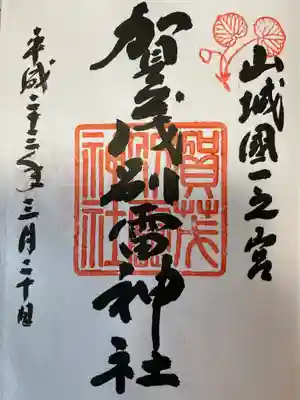 山城國一之宮
賀茂別雷神社
平成二十三年三月二十日
賀茂
別雷
神社